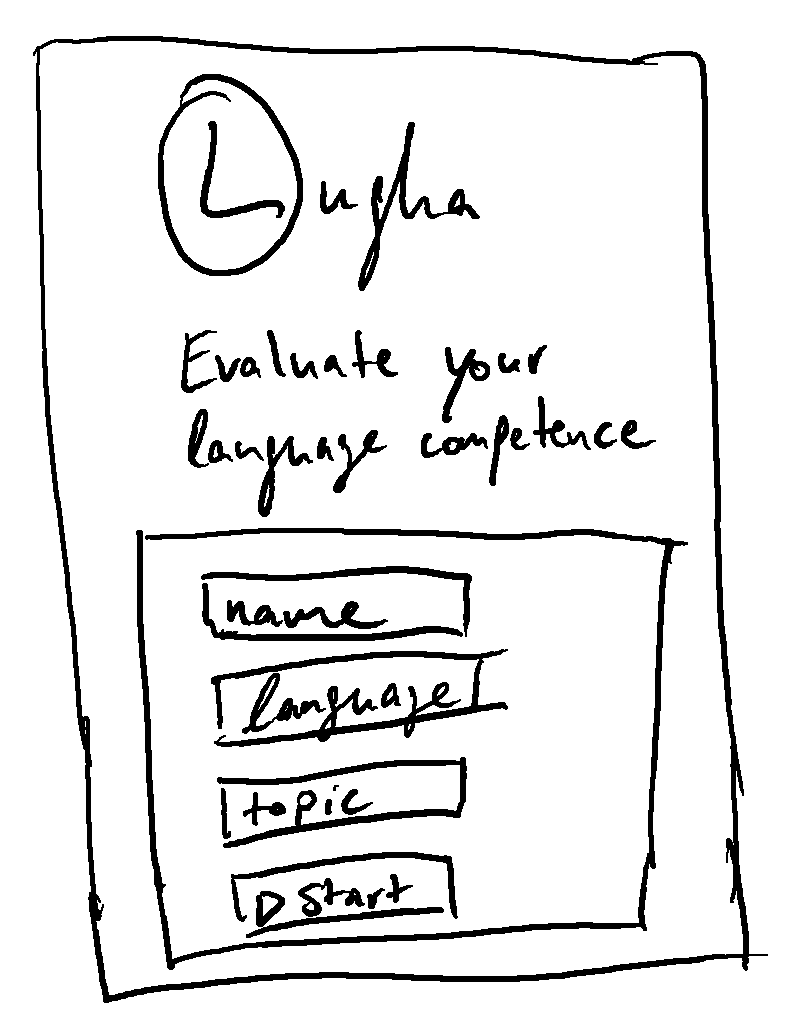 Lugha
Evaluate your
language competence
name
language
topic
▷ Start